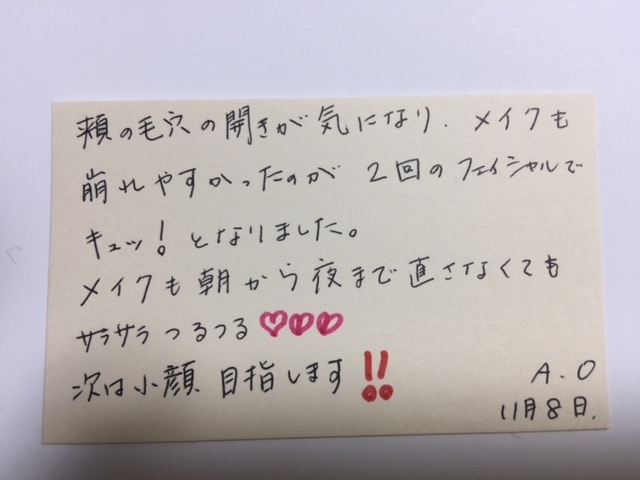 頬の毛穴の開きが気になり、メイクも
崩れやすかったのが 2回のフェイシャルで
キュッ!となりました。
メイクも朝から夜まで直さなくても
サラサラつるつる♡♡♡
次は小顔 目指します!!
A.O
11月8日.